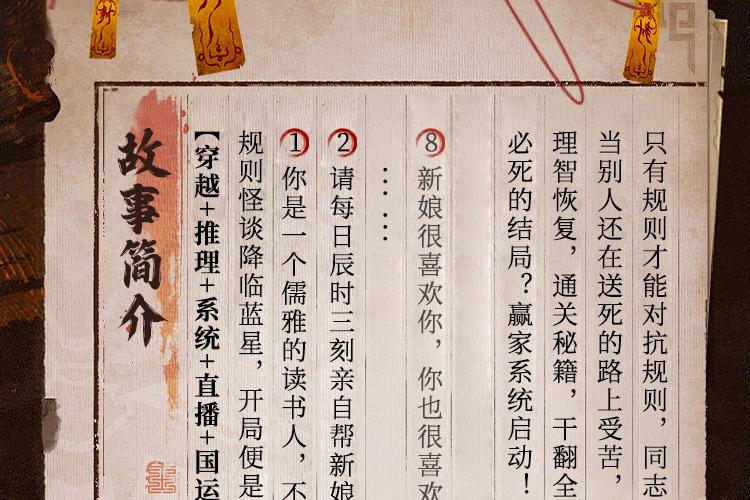 故事简介
【穿越+推理+系统+直播+国运
规则怪谈降临蓝星，开局便是
1你是一个儒雅的读书人，不
2请每日辰时三刻亲自帮新娘
……
8新娘很喜欢你，你也很喜欢
必死的结局？赢家系统启动！
理智恢复，通关秘籍，干翻全
当别人还在送死的路上受苦，
只有规则才能对抗规则，同志